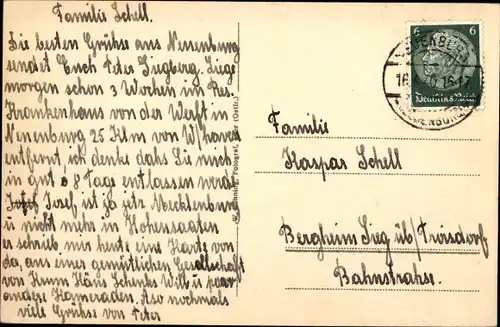 Familie Schell.
Die besten Grühse aus Neuenburg
sendet Euch Peter Siegberg. Liege
morgen schon 3 Wochen im Res.
Krankenhaus von der Werft in
Neuenburg 25 Klm von W'haven
entfernt, ich denke dahs Sie mich
in gut 8 Tage entlassen
Josef ist ja jetz Mecklenburg
u nicht mehr in Hohensaaten
er schrieb mir heute eine Karte von
da, aus einer gemütlichen Gesellschaft
von Schenks Willi u paar
andere Kameraden. Also nochmals
viele Grühse von Peter
6
6
Deutsches Reich
Familie
Kaspar Schell
Bergheim Sieg üb/Troisdorf
Bahnstrahse.